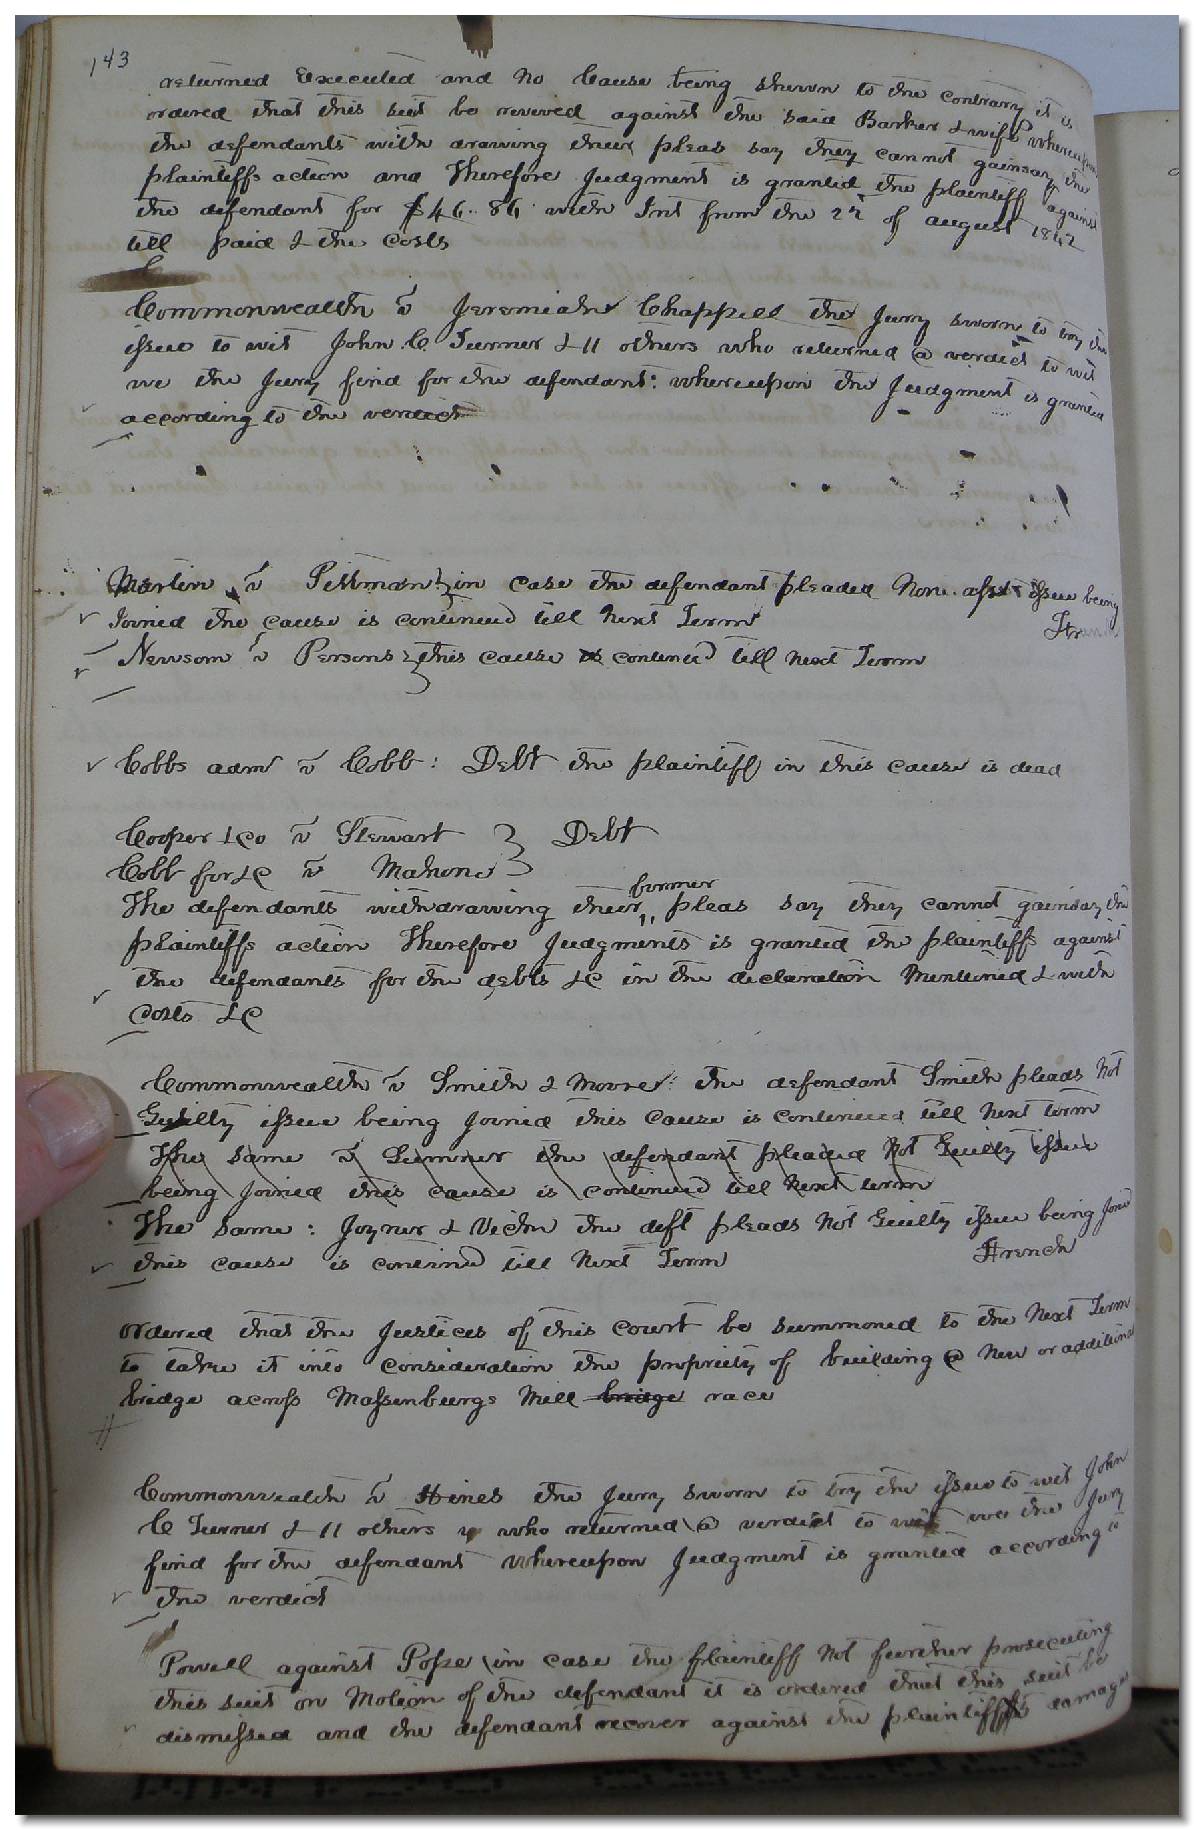 143
returned Executed and No Cause being shewn to the contrary it is
ordered that this suit be revived against the said Barker & wife whereupon
the defendants with drawing their pleas say they cannot gainsay the
plaintiffs action and Therefore Judgment is granted the plaintiff against
the defendant for $46..86 with Int from the 2d of august 1842
till paid & the costs
Commonwealth v Jeremiah Chappell the Jury sworn to try the
issue to wit John C Turner & 11 others who returned a verdict to wit
we the Jury find for the defendant: whereupon the Judgment is granted
according to the verdict
Martin v Pittman } in case the defendant pleaded Non asst issue being
Joined the cause is continued till Next Term
Newsom v Persons } this cause is continued till next Term
Cobbs admr v Cobb: Debt the plaintiff in this cause is dead
Cooper & Co v Stewart } Debt
Cobb for &C v Mahone }
former
The defendants withdrawing their pleas say they cannot gainsay the
plaintiffs action Therefore Judgments is granted the plaintiffs against
the defendants for the debts &C in the declaration Mentioned & with
costs &C
Commonwealth v Smith & Moore: the defendant Smith pleads Not
Guilty issue being Joined this cause is continued till Next term
The same v Sumner the defendant pleaded Not Guilty issue
being Joined this cause is continued till Next term
The same: Joyner & Vick the deft pleads Not Guilty issue being Joined
French
this cause is contind till Next Term
ordered that the Justices of this court be summoned to the Next Term
to take it into consideration the propriety of building a New or additional
bridge across Massenburgs Mill bridge race
Commonwealth v Hines the Jury sworn to try the issue to wit John
C Turner & 11 others who returned a verdict to wit we the Jury
find for the defendant whereupon Judgment is granted according to
the verdict
Powell against Pope in case the plaintiff Not further prosecuting
this suit on Motion of the defendant it is ordered that this suit be
dismissed and the defendant recover against the plaintiff damages